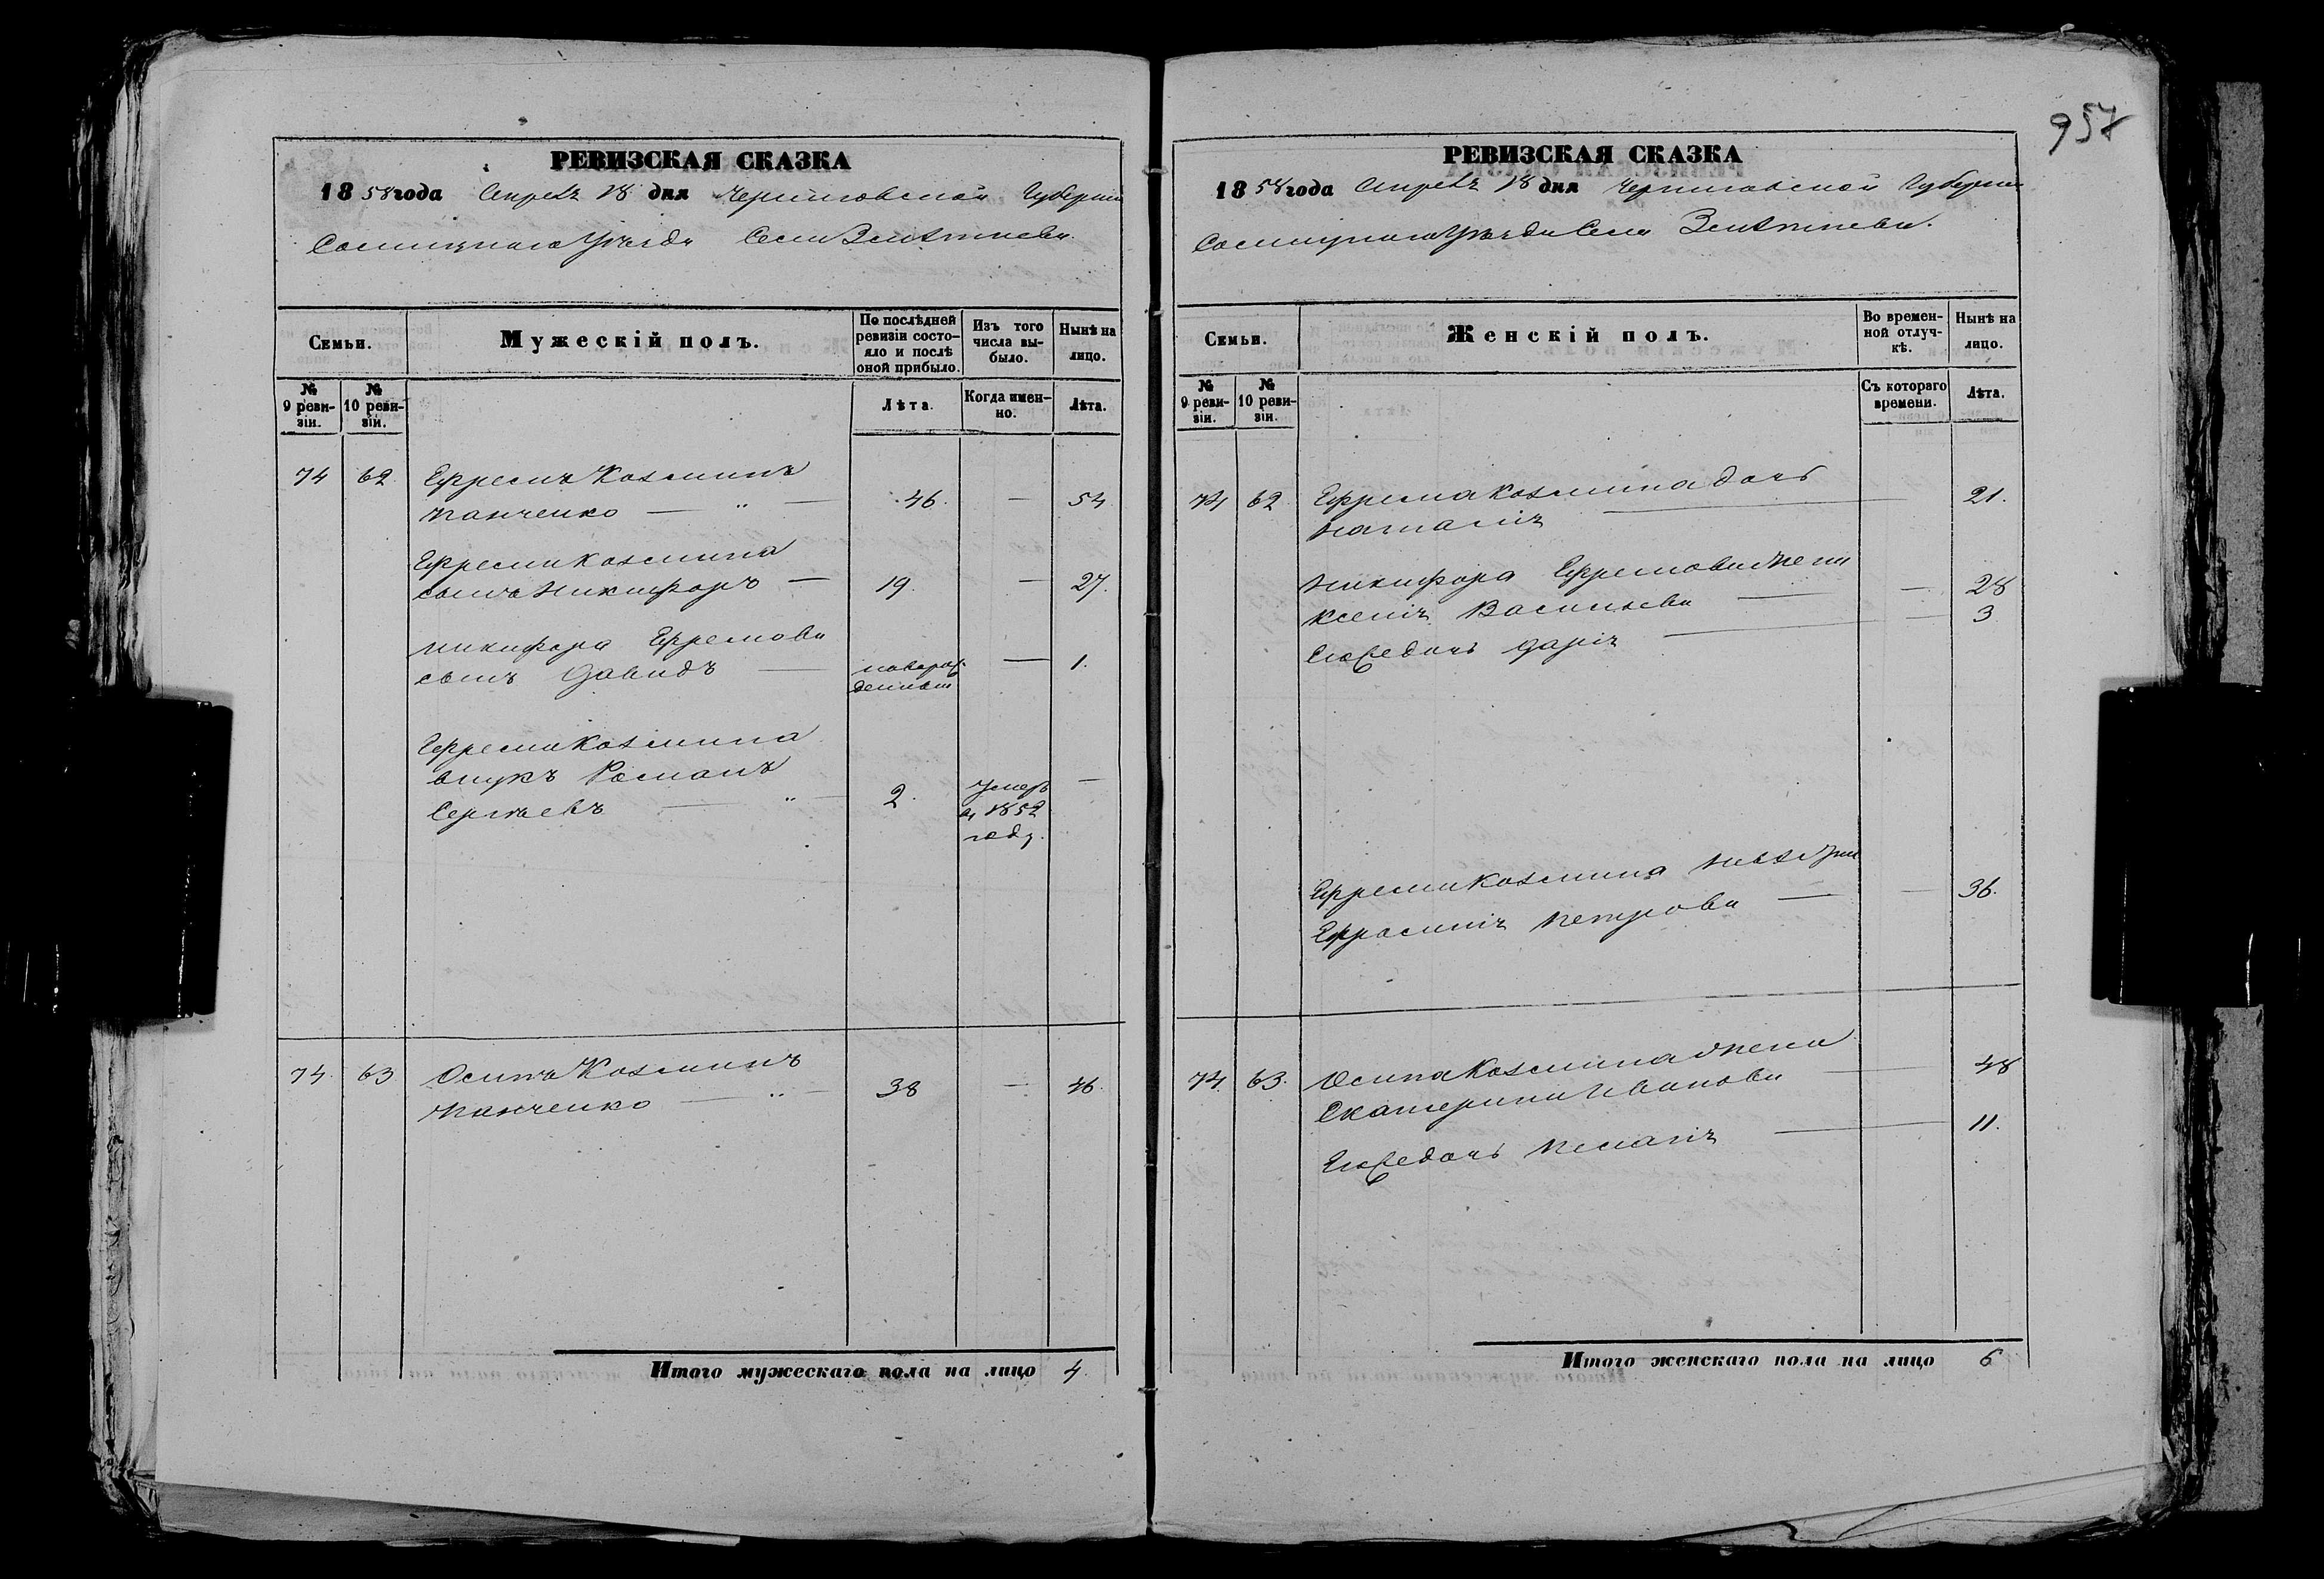 РЕВИЗСКАЯ СКАЗКА
1858 года Апреля 18 дня Черниговской Губернии
Сосницкаго Уѣзда Села
Семьи.
Мужескій полъ.
По послѣдней ревизіи состояло и послѣ оной прибыло.
Изъ того числа выбыло.
Нынѣ на лицо.
№ 9 ревизіи.
№ 10 ревизіи.
Лѣта.
Когда именно.
Лѣта.
74 62 Ефремъ Козминъ
Панченко — " — 46. — 54
Ефрема Козмина
сынъ Никифоръ — 19. — 27.
Никифора Ефремова
сынъ Давидъ — новорож- — 1.
денный
Ефрема Козмина
внукъ Романъ
Сергѣевъ — " — 2. Умеръ —
в 1852
году.
74. 63 Осипъ Козминъ
Панченко — " — 38 — 46.
Итого мужескаго пола на лицо 4.
957
РЕВИЗСКАЯ СКАЗКА
1858 года Апреля 18 дня Черниговской Губернии
Сосницкаго Уѣзда Села
Семьи.
Женскій полъ.
Во временной отлучкѣ.
Нынѣ на лицо.
№ 9 ревизіи.
№ 10 ревизіи.
Съ котораго времени.
Лѣта.
74 62. Ефрема Козмина дочь
Наталія — 21.
Никифора Ефремова жена
Ксенія Васильева — — 28
Его же дочь Дарія — — 3
Ефрема Козмина
Ефросинія Петрова — — 36.
74. 63. Осипа Козмина жена
Екатерина Иванова — 48
Его же дочь Пелагія — 11.
Итого женскаго пола на лицо 6